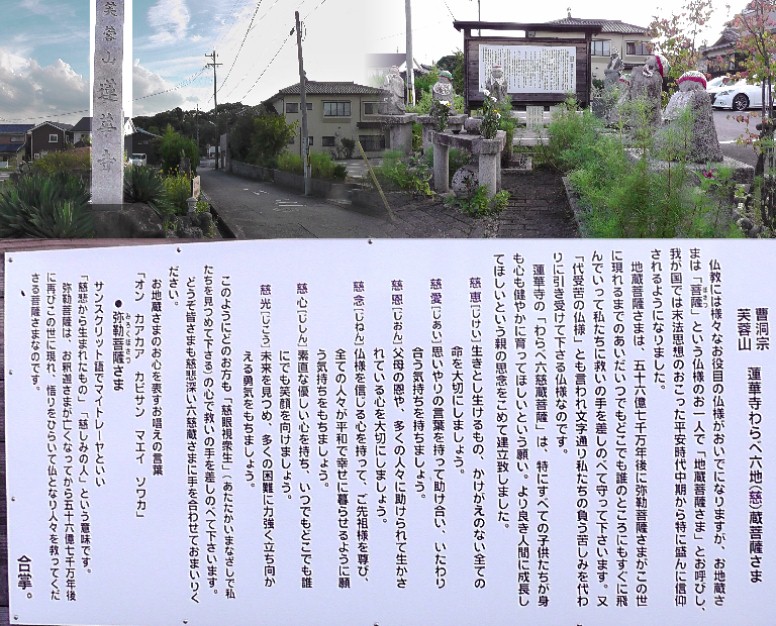 芙蓉山蓮華寺
曹洞宗
芙蓉山　蓮華寺わらべ六地(慈)蔵菩薩さま
仏教には様々なお役目の仏様がおいでになりますが、お地蔵さ
まは「菩薩」という仏様のお一人で「地蔵菩薩さま」とお呼びし、
ぼさつ
我が国では末法思想のおこった平安時代中期から特に盛んに信仰
されるようになりました。
地蔵菩薩さまは、五十六億七千万年後に弥勒菩薩さまがこの世
に現れるまでのあいだいつでもどこでも誰のところにもすぐに飛
んでいって私たちに救いの手を差しのべて守って下さいます。又
「代受苦の仏様」とも言われ文字通り私たちの負う苦しみを代わ
りに引き受けて下さる仏様なのです。
蓮華寺の「わらべ六慈蔵菩薩」は、特にすべての子供たちが身
も心も健やかに育ってほしいという願い。より良き人間に成長し
てほしいという親の思念をこめて建立致しました。
慈恵［じけい］生きとし生けるもの、かけがえのない全ての
命を大切にしましょう。
慈愛［じあい］思いやりの言葉を持って助け合い、いたわり
合う気持ちを持ちましょう。
慈恩［じおん］父母の恩や、多くの人々に助けられて生かさ
れている心を大切にしましょう。
慈念［じねん］仏様を信じる心を持って、ご先祖様を尊び、
全ての人々が平和で幸せに暮らせるように願
う気持ちをもちましょう。
慈心［じしん］素直な優しい心を持ち、いつでもどこでも誰
にでも笑顔を向けましょう。
慈光［じこう］未来を見つめ、多くの困難に力強く立ち向か
える勇気をもちましょう。
このようにどのお方も「慈眼視衆生」（あたたかいまなざしで私
たちを見つめて下さる）の心で救いの手を差しのべて下さいます。
どうぞ皆さまも慈悲深い六慈蔵さまに手を合わせておまいりく
ださい。
お地蔵さまのお心を表すお唱えの言葉
「オン　カアカア　カビサン　マエイ　ソワカ」
●弥勒菩薩さま
みろくぼさつ
サンスクリット語でマイトレーヤといい
「慈悲から生まれたもの」「慈しみの人」という意味です。
弥勒菩薩は、お釈迦さまが亡くなってから五十六億七千万年後
に再びこの世に現れ、悟りをひらいて仏となり人々を救ってくだ
さる菩薩さまなのです。
合掌。